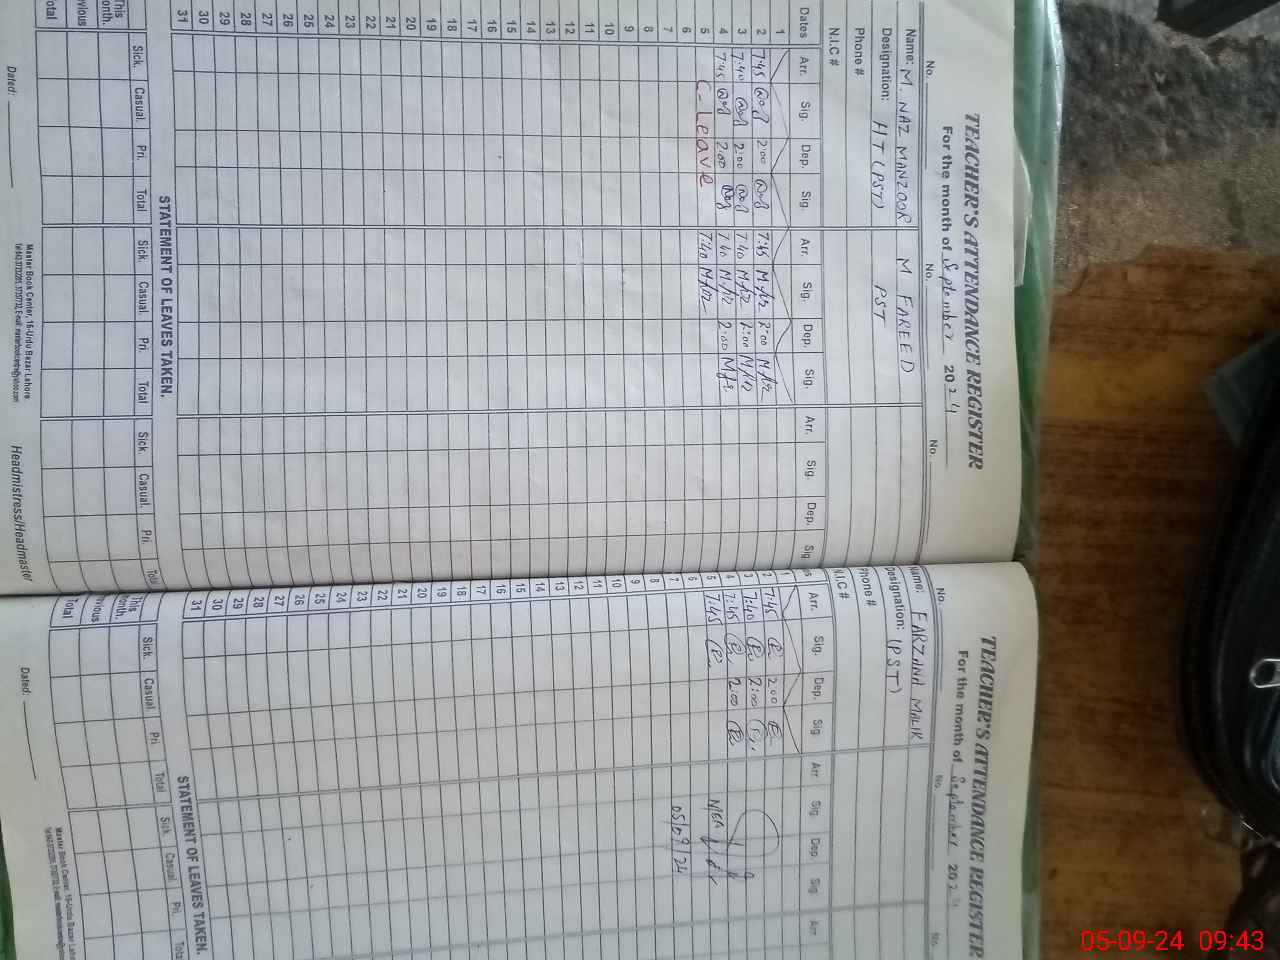 TEACHER'S ATTENDANCE REGISTER
For the month of September 2024
No. No. No.
Name: M. NAZ MANZOOR M FAREED
Designation: HT (PST) PST
Phone #
N.I.C #
Dates Arr. Sig. Dep. Sig. Arr. Sig. Dep. Sig. Arr. Sig. Dep. Sig
1
2 7:45 2:00 7:45 2:00
3 7:40 2:00 7:40 2:00
4 7:45 2:00 7:40 2:00
5 C-Leave 7:40
6
7
8
9
10
11
12
13
14
15
16
17
18
19
20
21
22
23
24
25
26
27
28
29
30
31
STATEMENT OF LEAVES TAKEN.
Sick. Casual. Pri. Total Sick. Casual. Pri. Total Sick. Casual. Pri. Total
This month.
vious
Total
Master Book Center, 16-Urdu Bazar Lahore
Dated: Headmistress/Headmaster
TEACHER'S ATTENDANCE REGISTER
For the month of September 202
No. No. No.
Name: FARZANA MALIK
Designation: (PST)
Phone #
N.I.C #
Arr. Sig. Dep. Sig Arr Sig. Dep. Sig. Arr
1
2 7:45 2:00
3 7:40 2:00
4 7:45 2:00
5 7:45
6
7
8
9
10
11
12
13
14
15
16
17
18
19
20
21
22
23
24
25
26
27
28
29
30
31
05/09/24
STATEMENT OF LEAVES TAKEN.
Sick. Casual. Pri Total Sick. Casual. Pri. Total
This month.
vious
Total
Master Book Center, 16-Urdu Bazar Lahore
Dated:
05-09-24 09:43